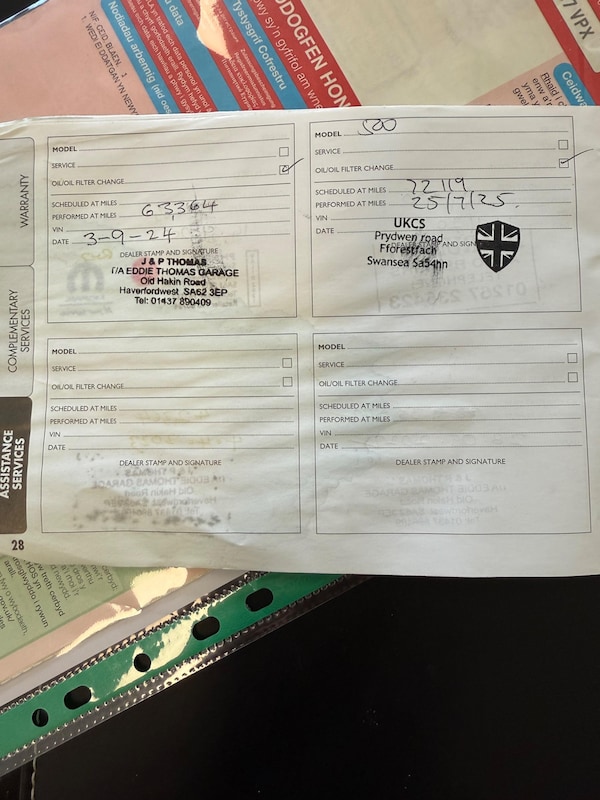 7 VPX
DOGFEN HON
Tystysgrif Cofrestru
Nodiadau arbennig
WARRANTY
COMPLEMENTARY
SERVICES
ASSISTANCE
SERVICES
28
MODEL
SERVICE
OIL/OIL FILTER CHANGE
SCHEDULED AT MILES
PERFORMED AT MILES 63,364
VIN
DATE 3-9-24
DEALER STAMP AND SIGNATURE
J & P THOMAS
T/A EDDIE THOMAS GARAGE
Old Hakin Road
Haverfordwest SA62 3EP
Tel: 01437 890409
MODEL 500
SERVICE
OIL/OIL FILTER CHANGE
SCHEDULED AT MILES 72119
PERFORMED AT MILES 25/7/25.
VIN
DATE
DEALER STAMP AND SIGN
UKCS
Prydwen road
Fforestfach
Swansea Sa54hn
MODEL
SERVICE
OIL/OIL FILTER CHANGE
SCHEDULED AT MILES
PERFORMED AT MILES
VIN
DATE
DEALER STAMP AND SIGNATURE
MODEL
SERVICE
OIL/OIL FILTER CHANGE
SCHEDULED AT MILES
PERFORMED AT MILES
VIN
DATE
DEALER STAMP AND SIGNATURE